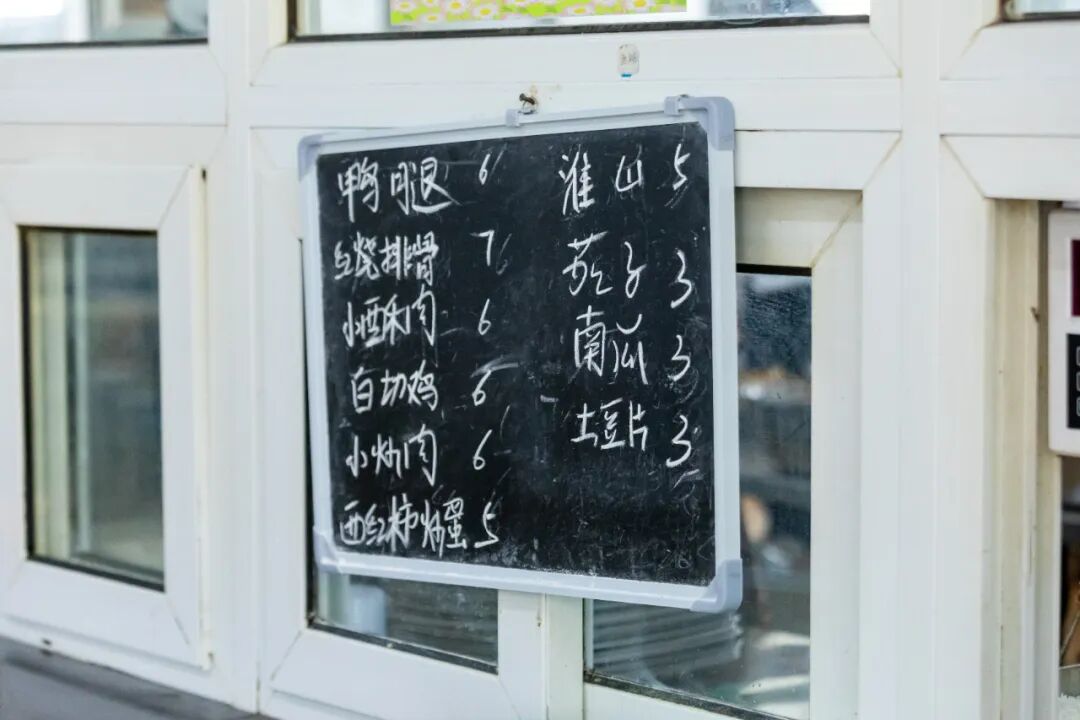 鸭腿 6
红烧排骨 7
小酥肉 6
白切鸡 6
小炒肉 6
西红柿炒蛋 5
淮山 5
茄子 3
南瓜 3
土豆片 3